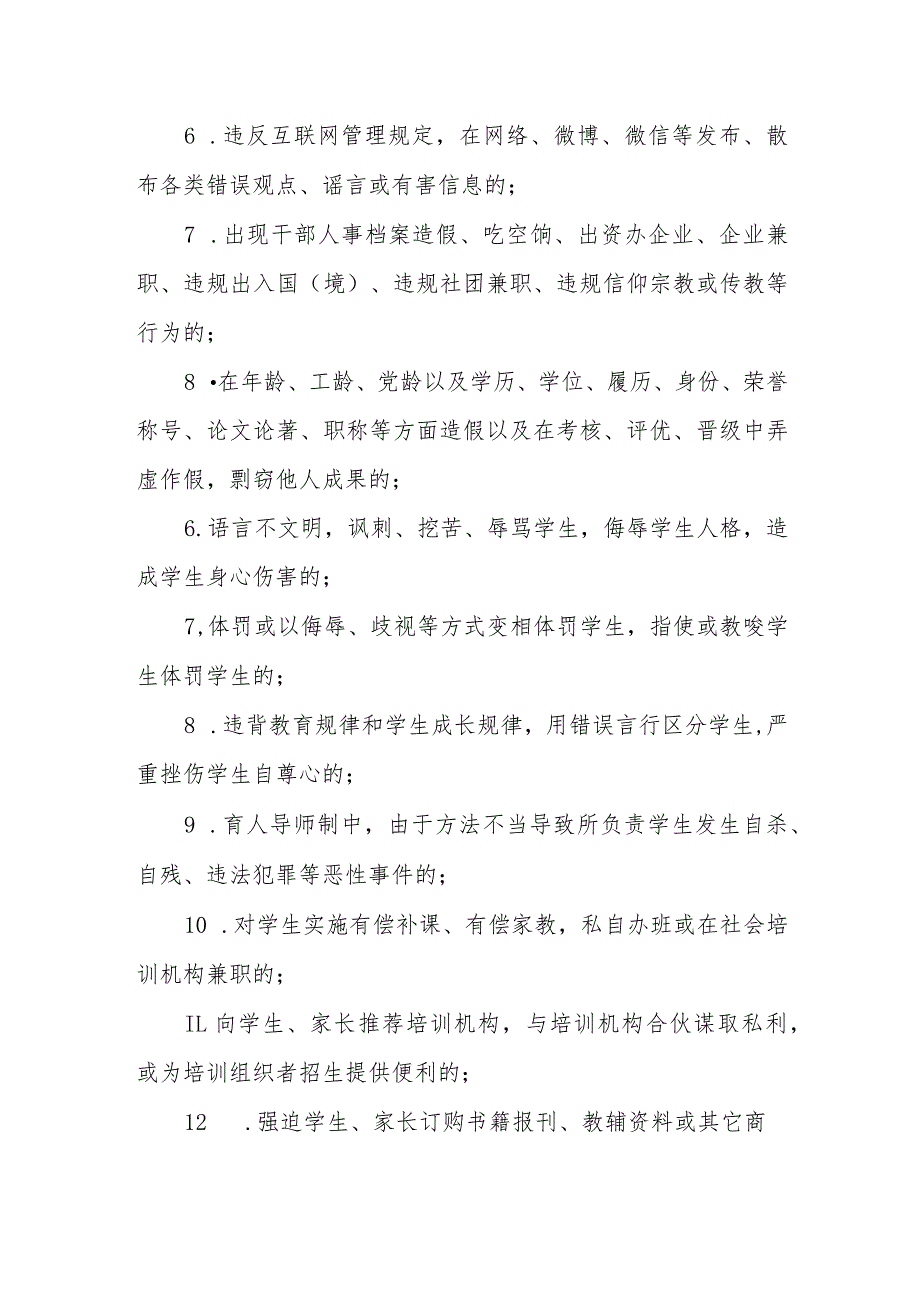 6 .违反互联网管理规定，在网络、微博、微信等发布、散
布各类错误观点、谣言或有害信息的；
7 .出现干部人事档案造假、吃空饷、出资办企业、企业兼
职、违规出入国（境）、违规社团兼职、违规信仰宗教或传教等
行为的；
8 •在年龄、工龄、党龄以及学历、学位、履历、身份、荣誉
称号、论文论著、职称等方面造假以及在考核、评优、晋级中弄
虚作假，剽窃他人成果的；
6.语言不文明，讽刺、挖苦、辱骂学生，侮辱学生人格，造
成学生身心伤害的；
7,体罚或以侮辱、歧视等方式变相体罚学生，指使或教唆学
生体罚学生的；
8 .违背教育规律和学生成长规律，用错误言行区分学生,严
重挫伤学生自尊心的；
9 .育人导师制中，由于方法不当导致所负责学生发生自杀、
自残、违法犯罪等恶性事件的；
10 .对学生实施有偿补课、有偿家教，私自办班或在社会培
训机构兼职的；
IL向学生、家长推荐培训机构，与培训机构合伙谋取私利，
或为培训组织者招生提供便利的；
12 .强迫学生、家长订购书籍报刊、教辅资料或其它商